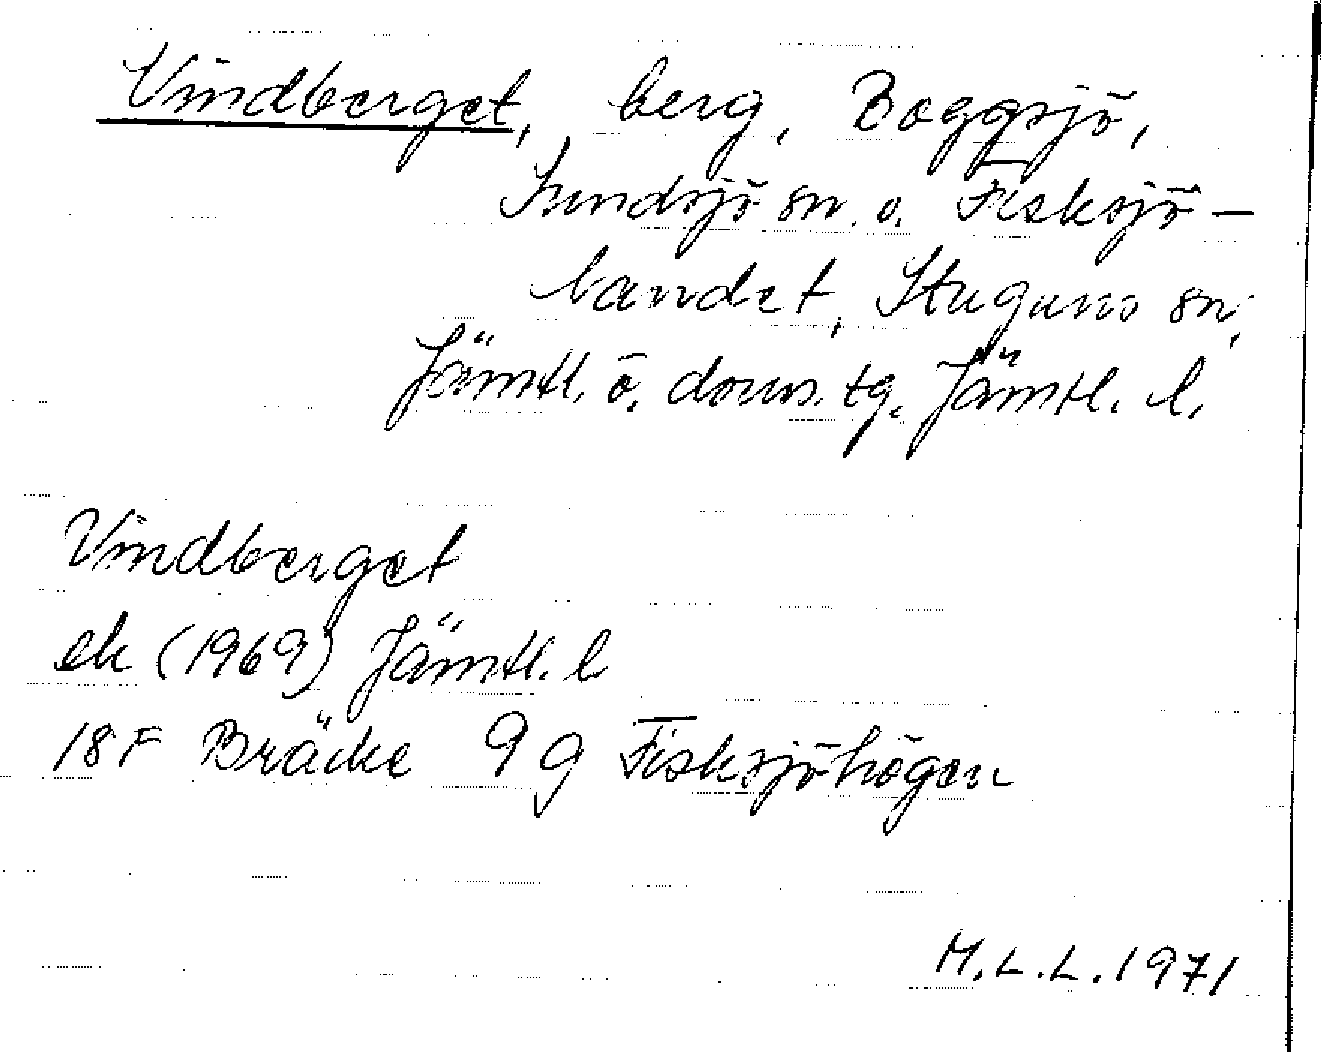 Vindberget, berg, Boggsjö,
Sundsjö sn. o. Fisksjö-
landet, Stuguns sn,
Jämtl. ö. doms. tg. Jämtl. l.
Vindberget
ek (1969) Jämtl. l
18F Bräcke 9 g Fisksjöhögen
M.L.L. 1971